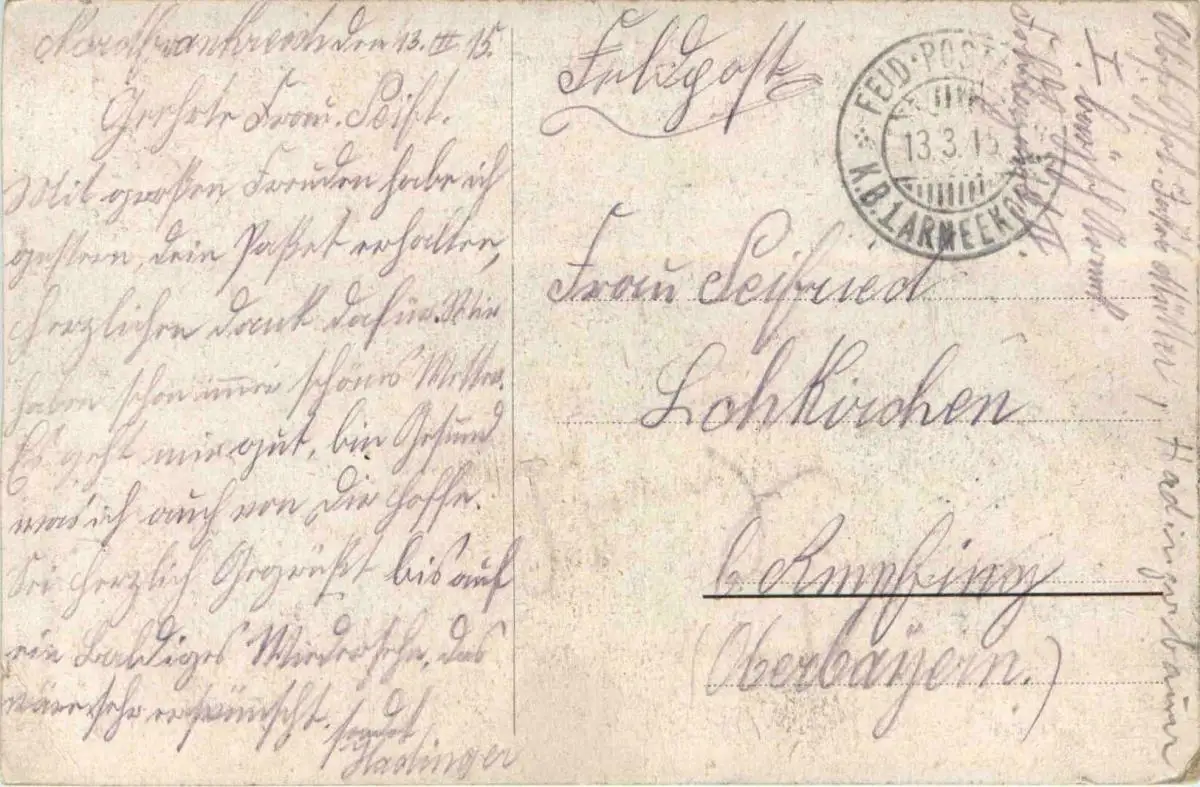 Nordfrankreich den 13. III 15.
Geehrte Frau. Seift.
Mit großen Freuden habe ich
gestern, dein Paket erhalten,
herzlichen dank dafür. Wir
haben schon immer schönes Wetter.
Es geht mir gut, bin Gesund
was ich auch von Dir hoffe.
Sei herzlich Gegrüßt bis auf
ein Baldiges Wiedersehn, das
wäre sehr erwünscht. sendet
Hadinger
Feldpost
FELD-POST
13.3.15
K.B.1.ARMEEKORPS
Frau Seifried
Lohkirchen
b Ampfing
(Oberbayern.)
I. bayr.
Müller, Hadinger